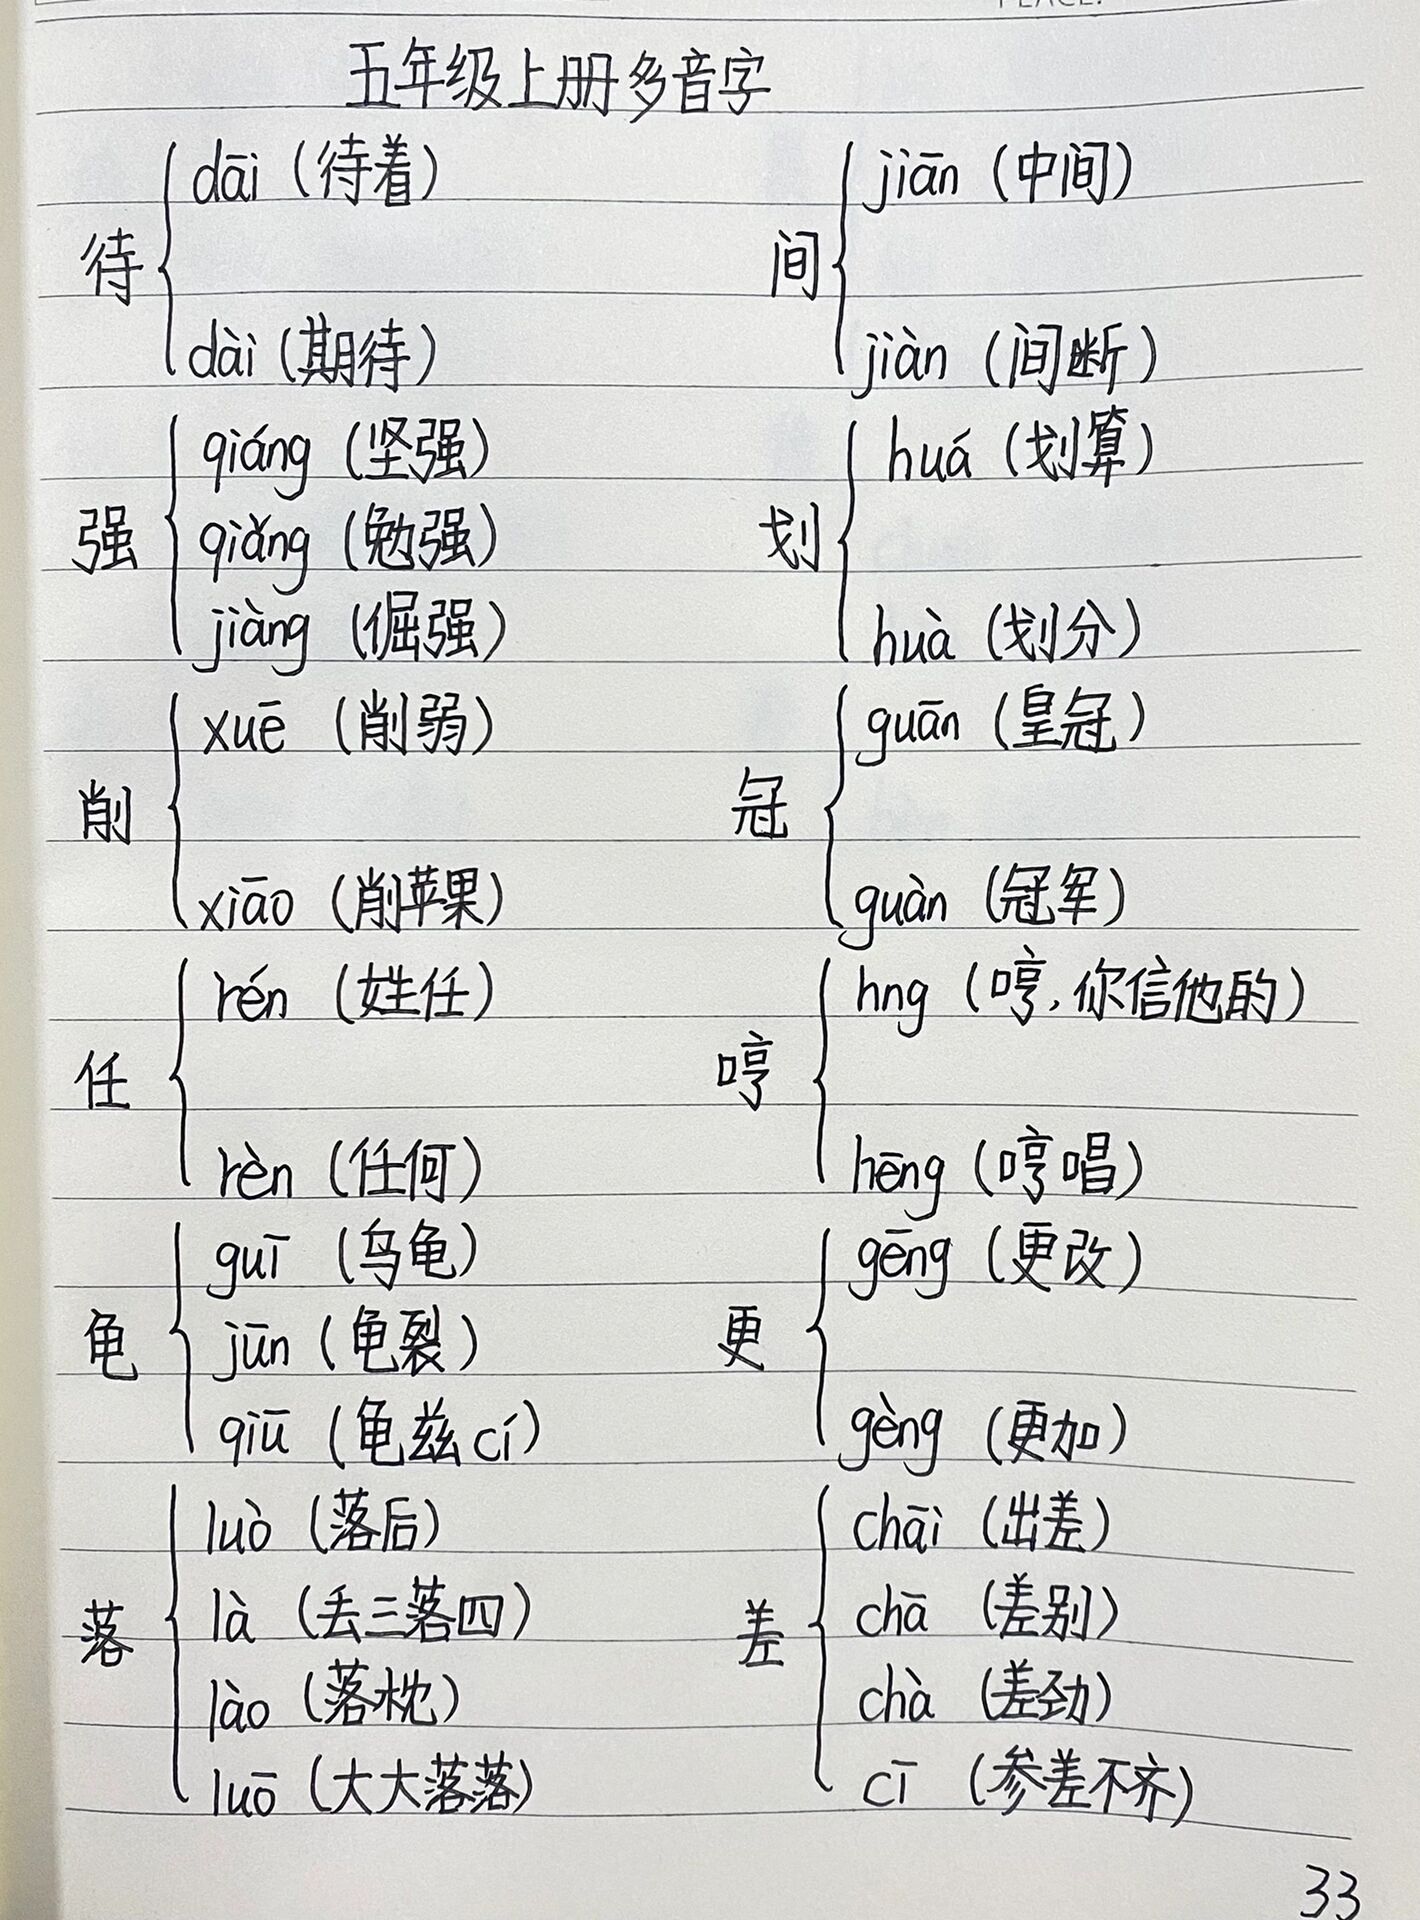 五年级上册多音字
待
dāi（待着）
dài（期待）
间
jiān（中间）
jiàn（间断）
强
qiáng（坚强）
qiǎng（勉强）
jiàng（倔强）
划
huá（划算）
huà（划分）
削
xuē（削弱）
xiāo（削苹果）
冠
guān（皇冠）
guàn（冠军）
任
rén（姓任）
rèn（任何）
哼
hng（哼,你信他的）
hēng（哼唱）
龟
guī（乌龟）
jūn（龟裂）
qiū（龟兹cí）
更
gēng（更改）
gèng（更加）
落
luò（落后）
là（丢三落四）
lào（落枕）
luō（大大落落）
差
chāi（出差）
chā（差别）
chà（差劲）
cī（参差不齐）
33